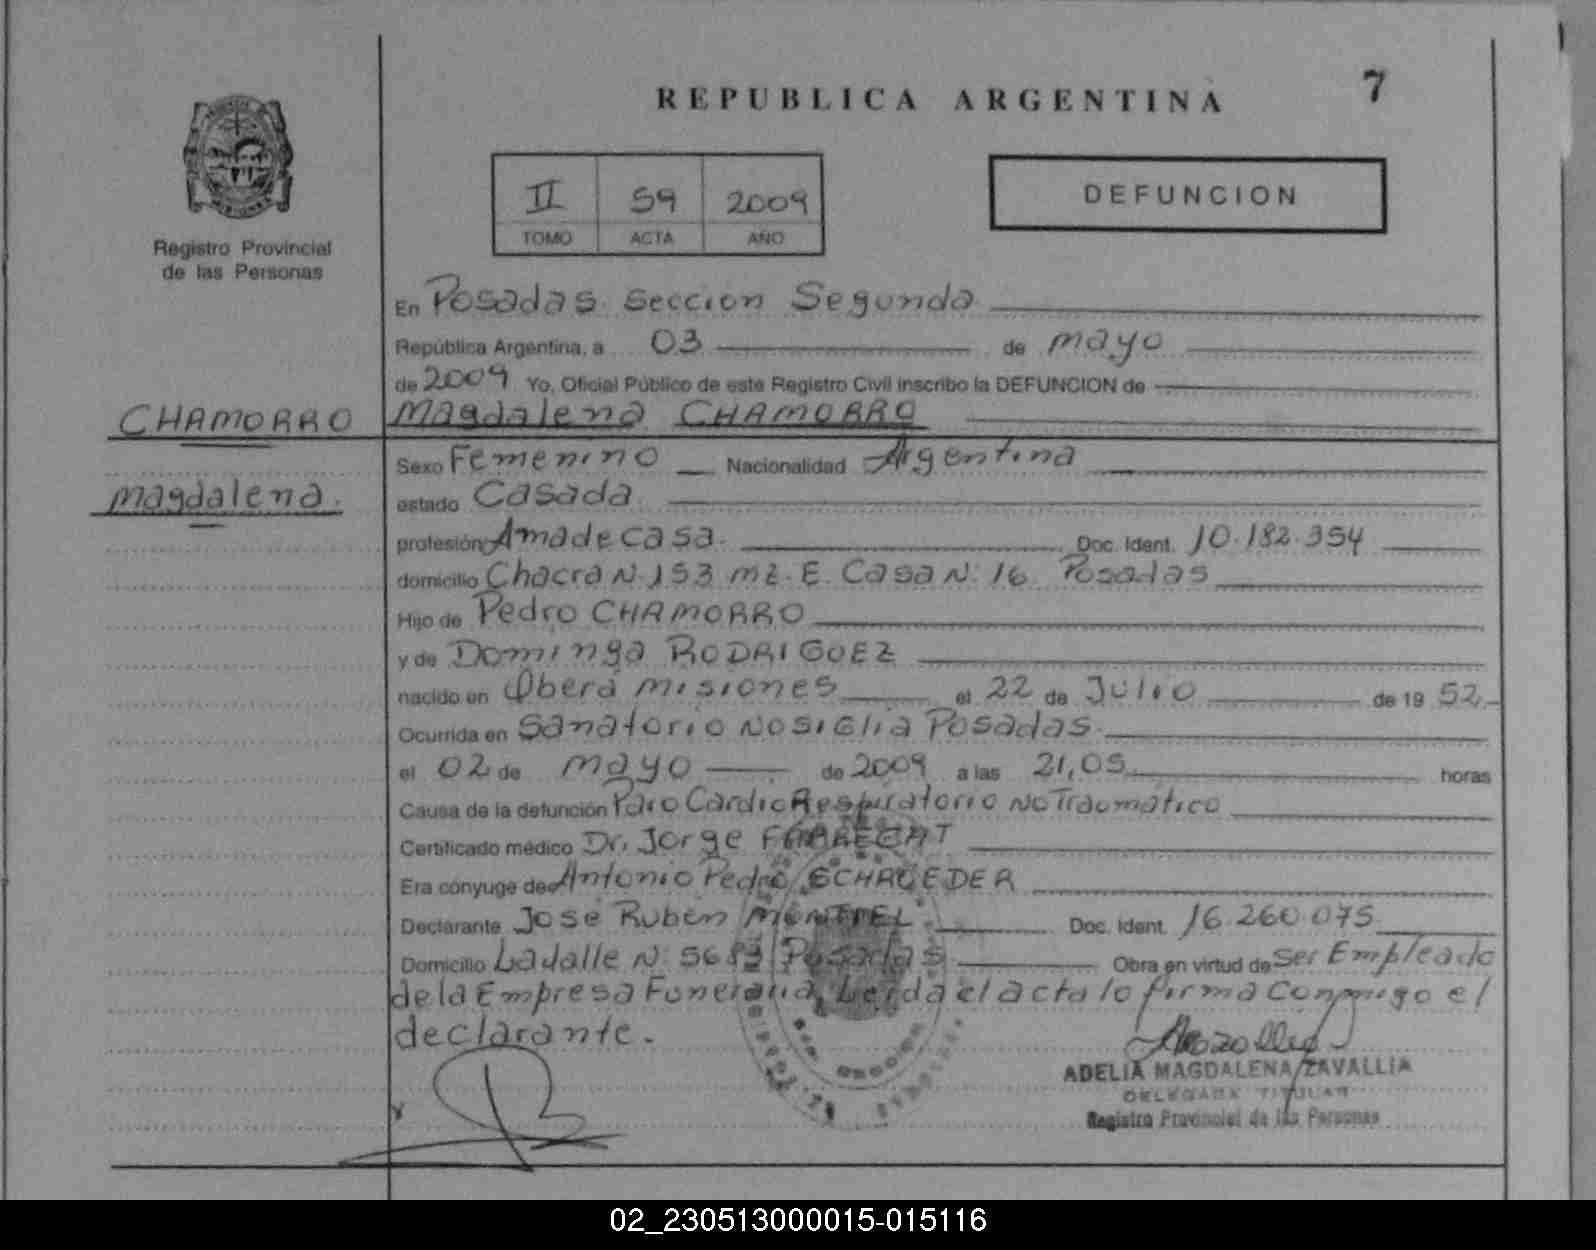 REPUBLICA ARGENTINA
7
II 59 2009
TOMO ACTA AÑO
DEFUNCION
Registro Provincial
de las Personas
En Posadas Seccion Segunda
República Argentina, a 03 de mayo
de 2009 Yo, Oficial Público de este Registro Civil inscribo la DEFUNCION de
CHAMORRO
Magdalena CHAMORRO
Sexo Femenino Nacionalidad Argentina
Magdalena.
estado Casada
profesión Ama de casa. Doc. Ident. 10.182.354
domicilio Chacra N. 153 mz. E. Casa N. 16 Posadas
Hijo de Pedro CHAMORRO
y de Dominga RODRIGUEZ
nacido en Obera misiones el 22 de Julio de 19 52
Ocurrida en Sanatorio NOSIGlia Posadas.
el 02 de mayo de 2009 a las 21,05 horas
Causa de la defunción Paro Cardio Respiratorio No Traumatico
Certificado médico Dr. Jorge
Era cónyuge de Antonio Pedro SCHROEDER
Declarante José Ruben MONTIEL Doc. Ident. 16.260.075
Domicilio Ladalle N. 5683 Posadas Obra en virtud de Ser Empleado
de la Empresa Funeraria, Leida el acta lo firma conmigo el
declarante.
ADELIA MAGDALENA ZAVALLIA
DELEGADA TITULAR
Registro Provincial de las Personas
02_230513000015-015116